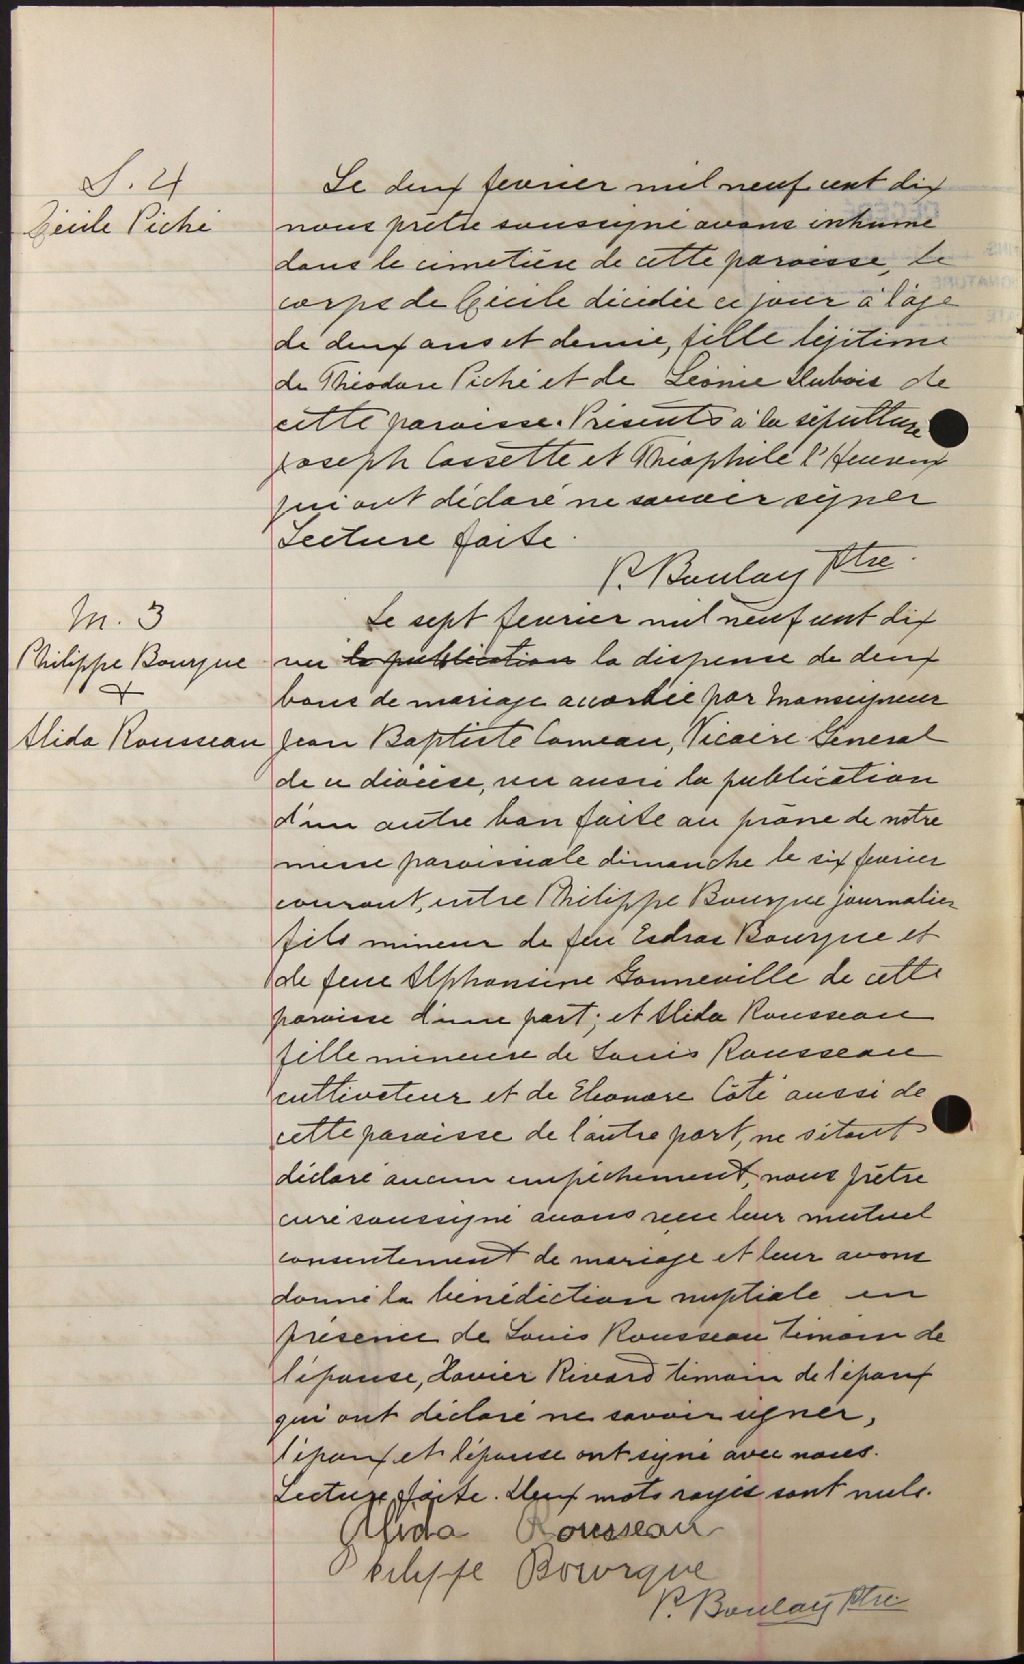 S. 4
Cécile Piché
Le deux fevrier mil neuf cent dix
nous prêtre soussigné avons inhumé
dans le cimetière de cette paroisse, le
corps de Cécile décédée ce jour à l'âge
de deux ans et demie, fille légitime
de Théodore Piché et de Léonie Dubois de
cette paroisse. Présents à la sépulture
Joseph Cossette et Théophile l'Heureux
qui ont déclaré ne savoir signer
Lecture faite.
P. Boulay Ptre.
M. 3
Philippe Bourque
+
Alida Rousseau
Le sept fevrier mil neuf cent dix
vu la publication la dispense de deux
bans de mariage accordée par Monseigneur
Jean Baptiste Comeau, Vicaire Géneral
de ce diocèse, vu aussi la publication
d'un autre ban faite au prône de notre
messe paroissiale dimanche le six fevrier
courant, entre Philippe Bourque journalier
fils mineur de feu Esdras Bourque et
de feue Alphonsine Gonneville de cette
paroisse d'une part; et Alida Rousseau
fille mineure de Louis Rousseau
cultivateur et de Eleonore Côté aussi de
cette paroisse de l'autre part, ne s'étant
déclaré aucun empêchement, nous prêtre
curé soussigné avons reçu leur mutuel
consentement de mariage et leur avons
donné la bénédiction nuptiale en
présence de Louis Rousseau témoin de
l'épouse, Xavier Rivard témoin de l'époux
qui ont déclaré ne savoir signer,
l'époux et l'épouse ont signé avec nous.
Lecture faite. Deux mots rayés sont nuls.
Alida Rousseau
Philippe Bourque
P. Boulay Ptre